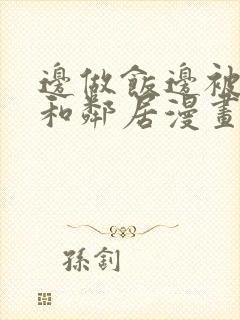 邊做飯邊被
和鄰居漫畫
孫釗